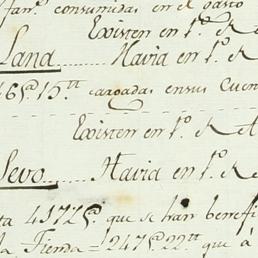 fanˢ. consumidas en el gasto
Existen en 1º. de
Lana ...... Havia en 1º. de
46@. 15 tt cargadas en sus Cuen
Existen en 1º. de
Sevo ...... Havia en 1º. de
ta 4172@. que se han benefi
la Tienda = 247@. 22 tt que â